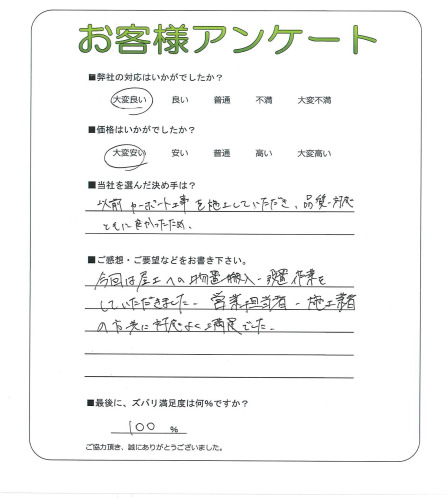 お客様アンケート
■弊社の対応はいかがでしたか？
大変良い 良い 普通 不満 大変不満
■価格はいかがでしたか？
大変安い 安い 普通 高い 大変高い
■当社を選んだ決め手は？
以前カーポート工事を施工していただき、品質・対応
ともに良かったため。
■ご感想・ご要望などをお書き下さい。
今回は屋上への物置搬入・設置作業を
していただきました。営業担当者・施工業者
の方共に対応よく満足でした。
■最後に、ズバリ満足度は何%ですか？
100 %
ご協力頂き、誠にありがとうございました。